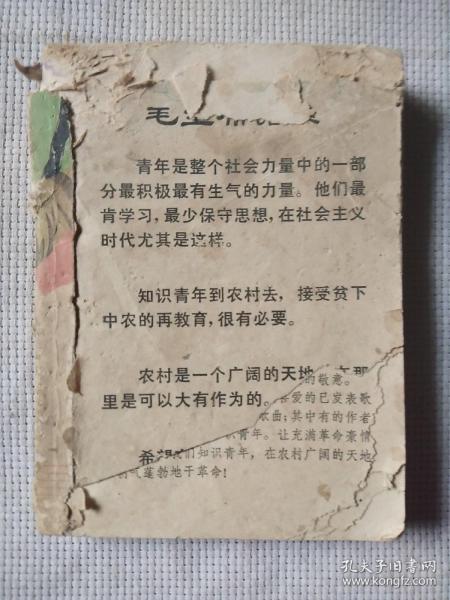 毛主
青年是整个社会力量中的一部
分最积极最有生气的力量。他们最
肯学习，最少保守思想，在社会主义
时代尤其是这样。
知识青年到农村去，接受贫下
中农的再教育，很有必要。
农村是一个广阔的天地，在那
里是可以大有作为的。
希望
的敬意。
爱的已发表歌
歌曲；其中有的作者
识青年。让充满革命豪情
们知识青年，在农村广阔的天地
气蓬勃地干革命！
孔夫子旧书网
www.kongfz.com